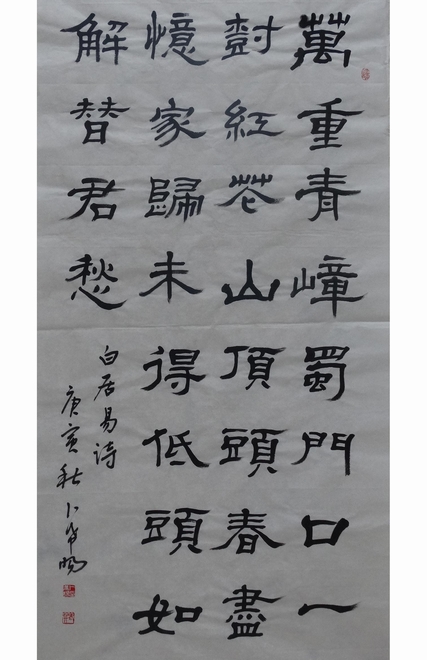 萬重青嶂蜀門口一
樹紅花山頂頭春盡
憶家歸未得低頭如
解替君愁
白居易詩
庚寅秋卜希旸